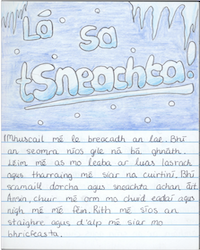 Lá sa
tSneachta!
Mhuscail mé le breacadh an lae. Bhí
an seomra níos gile ná ba ghnáth.
Léim mé as mo leaba ar luas lasrach
agus tharraing mé siar na cuirtíní. Bhí
gach
sneachta
áit.
Ansin, chuir mé orm mo chuid éadaí agus
nigh mé mé féin. Rith mé síos an
staighre agus d'alp mé siar mo
bhricfeasta.